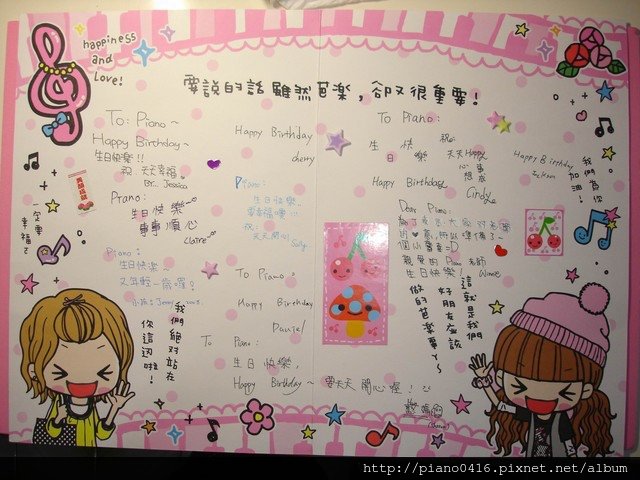 happiness
and
Love!
要說的話雖然芭樂，卻又很重要！
To: Piano~
Happy Birthday~
生日快樂!!
祝 天天幸福。
By. Jessica
Happy Birthday
cherry
To Piano:
生日快樂
祝:
天天Happy
心想事成
Happy Birthday
Cindy
Happy Birthday
Jackson
我們為你加油!
Piano:
生日快樂~
事事順心
Claire
Piano:
生日快樂.
要幸福噢!!!
祝:
天天開心
Sally
一定要幸福ㄛ
Dear Piano:
生日快樂
Winnie
Piano:
生日快樂~
又年輕一歲喔!
To Piano:
Happy Birthday
Daniel
我們絕對站在
你這邊啦!
這就是我們
好朋友應該
做的芭樂事ㄚ~
To Piano:
生日快樂,
Happy Birthday~ 要天天開心喔!
http://piano0416.pixnet.net/album